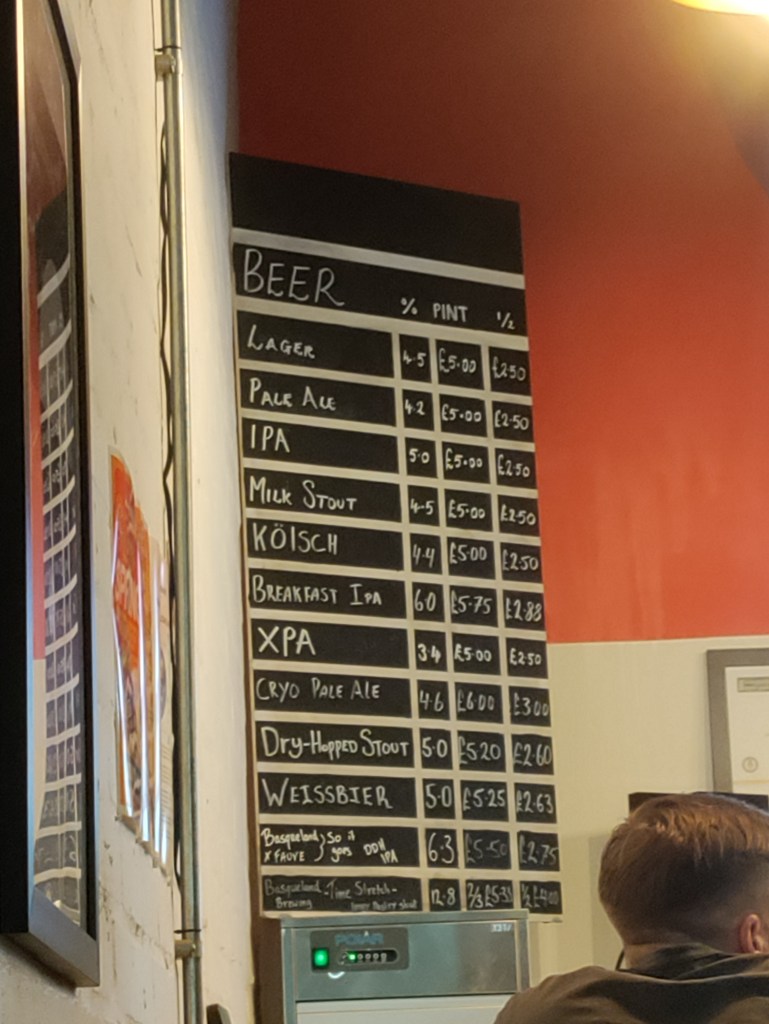 BEER % PINT 1/2
LAGER 4.5 £5.00 £2.50
PALE ALE 4.2 £5.00 £2.50
IPA 5.0 £5.00 £2.50
MILK STOUT 4.5 £5.00 £2.50
KÖLSCH 4.4 £5.00 £2.50
BREAKFAST IPA 6.0 £5.75 £2.88
XPA 3.4 £5.00 £2.50
CRYO PALE ALE 4.6 £6.00 £3.00
DRY-HOPPED STOUT 5.0 £5.20 £2.60
WEISSBIER 5.0 £5.25 £2.63
Basqueland } So it DDH 6.3 £5.50 £2.75
X FAUVE goes IPA
Basqueland - Time Stretch - 12.8 2/3 £5.33 1/2 £4.00
Brewing
POLAR